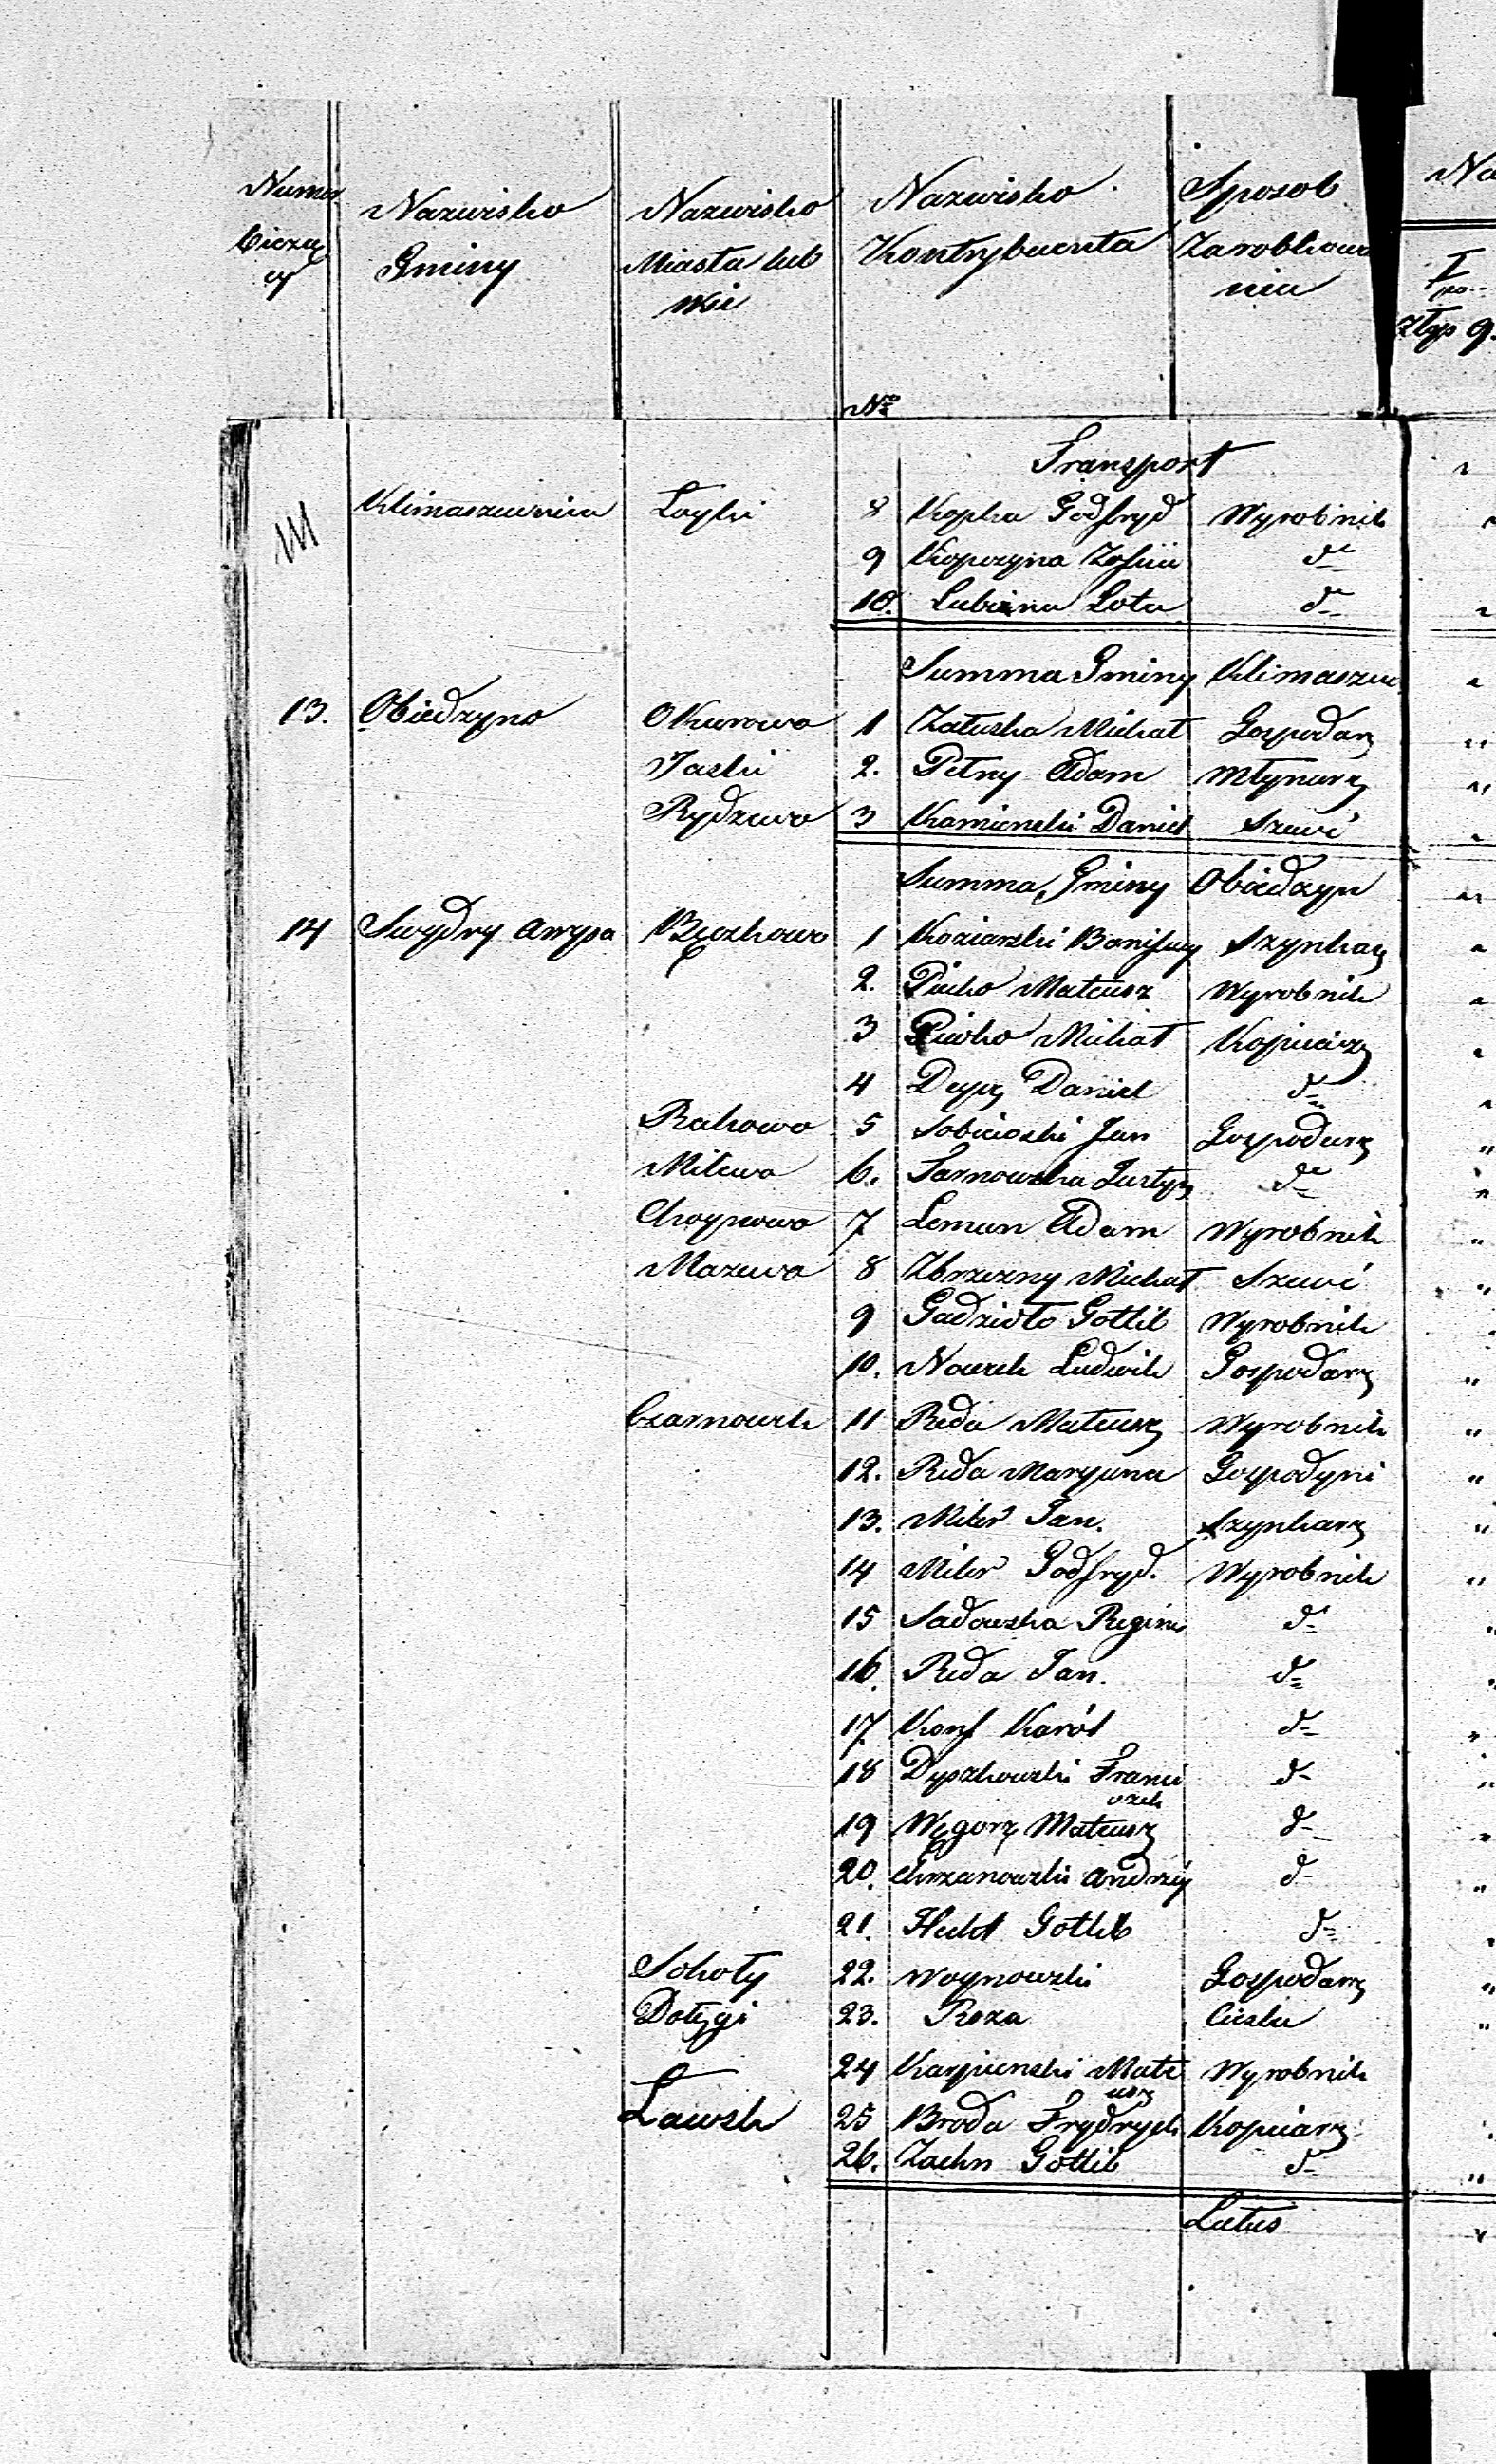 Numer bieżący | Nazwisko Gminy | Nazwisko Miasta lub Wsi | Nazwisko Kontrybuenta | Sposob Zarobkowania | Na
Nro | I po Złtp g.
Transport
Klimaszewnica | Łoyki | 8 | Kopka Godfryd | Wyrobnik
9 | Kopczyna Zofiia | do
10. | Lubiena Lota | do
Summa Gminy Klimaszew
13. | Obiedzyno | Okurowo | 1 | Załuska Michał | Gospodarz
Jaski | 2. | Petny Adam | Młynarz
Rydzewo | 3 | Kamienski Daniel | Szewc
Summa Gminy Obiedzyn
14 | Swydry awysa | Bęczkowo | 1 | Koziarski Bonifacy | Szynkarz
2. | Piwko Mateusz | Wyrobnik
3 | Piwko Michał | Kopciarz
4 | Depz Daniel | do
Rakowo | 5 | Sobicioski Jan | Gospodarz
Milewo | 6. | Sarnowska Justyn | do
Choynowo | 7 | Leman Adam | Wyrobnik
Mazewo | 8 | Zbrzezny Michał | Szewc
9 | Gadzidło Gottlib | Wyrobnik
10. | Nowek Ludwik | Gospodarz
Czarnowek | 11 | Reda Mateusz | Wyrobnik
12. | Reda Maryana | Gospodyni
13. | Miler Jan. | Szynkarz
14 | Miler Godfryd. | Wyrobnik
15 | Sadowska Regina | do
16. | Reda Jan. | do
17 | Konf Karól | do
18 | Dyszkowski Franciszek | do
19 | Węgorz Mateusz | do
20. | Chrzanowski Andrzéy | do
21. | Hecht Gottlib | do
Sokoły | 22. | Woynowski | Gospodarz
Dołęgi | 23. | Roza | Ciesla
24 | Karpienski Mateusz | Wyrobnik
Ławsk | 25 | Broda Frydrych | Kopciarz
26. | Zachn Gottlib | do
Latus